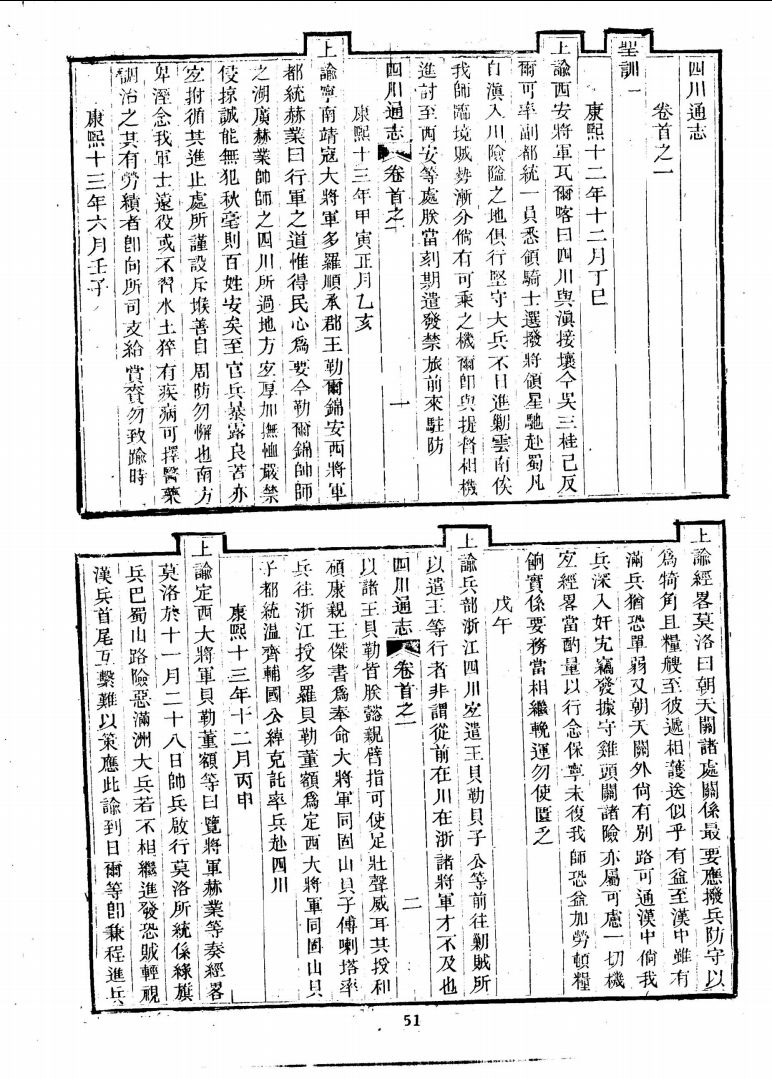 四川通志
卷首之一
聖訓一
康熙十二年十二月丁巳
上諭西安將軍瓦爾喀曰四川與滇接壤今吳三桂已反
爾可率副都統一員悉領騎士選撥將領星馳赴蜀凡
自滇入川險隘之地俱行堅守大兵不日進勦雲南俟
我師臨境賊勢漸分倘有可乘之機爾即與提督相機
進討至西安等處朕當刻期遣發禁旅前來駐防
四川通志 卷首之一 一
康熙十三年甲寅正月乙亥
上諭寧南靖寇大將軍多羅順承郡王勒爾錦安西將軍
都統赫業曰行軍之道惟得民心爲要今勒爾錦帥師
之湖廣赫業帥師之四川所過地方宜厚加撫恤嚴禁
侵掠誠能無犯秋毫則百姓安矣至官兵暴露良苦亦
宜拊循其進止處所謹設斥堠善自周防勿懈也南方
卑溼念我軍士遠役或不習水土猝有疾病可擇醫藥
調治之其有勞績者即向所司支給賞賚勿致踰時
康熙十三年六月壬子
上諭經畧莫洛曰朝天關諸處關係最要應撥兵防守以
爲犄角且糧艘至彼遞相護送似乎有益至漢中雖有
滿兵猶恐單弱又朝天關外尙有別路可通漢中倘我
兵深入奸宄竊發據守雞頭關諸險亦屬可慮一切機
宜經畧當酌量以行念保寧未復我師恐益加勞頓糧
餉實係要務當相繼輓運勿使匱乏
戊午
上諭兵部浙江四川宜遣王貝勒貝子公等前往勦賊所
以遣王等行者非謂從前在川在浙諸將軍才不及也
四川通志 卷首之一 二
以諸王貝勒皆朕懿親臂指可使足壯聲威耳其授和
碩康親王傑書爲奉命大將軍同固山貝子傅喇塔率
兵往浙江授多羅貝勒董額爲定西大將軍同固山貝
子都統温齊輔國公綽克託率兵赴四川
康熙十三年十二月丙申
上諭定西大將軍貝勒董額等曰覽將軍赫業等奏經畧
莫洛於十一月二十八日帥兵啟行莫洛所統係綠旗
兵巴蜀山路險惡滿洲大兵若不相繼進發恐賊輕視
漢兵首尾互繫難以策應此諭到日爾等即兼程進兵
51